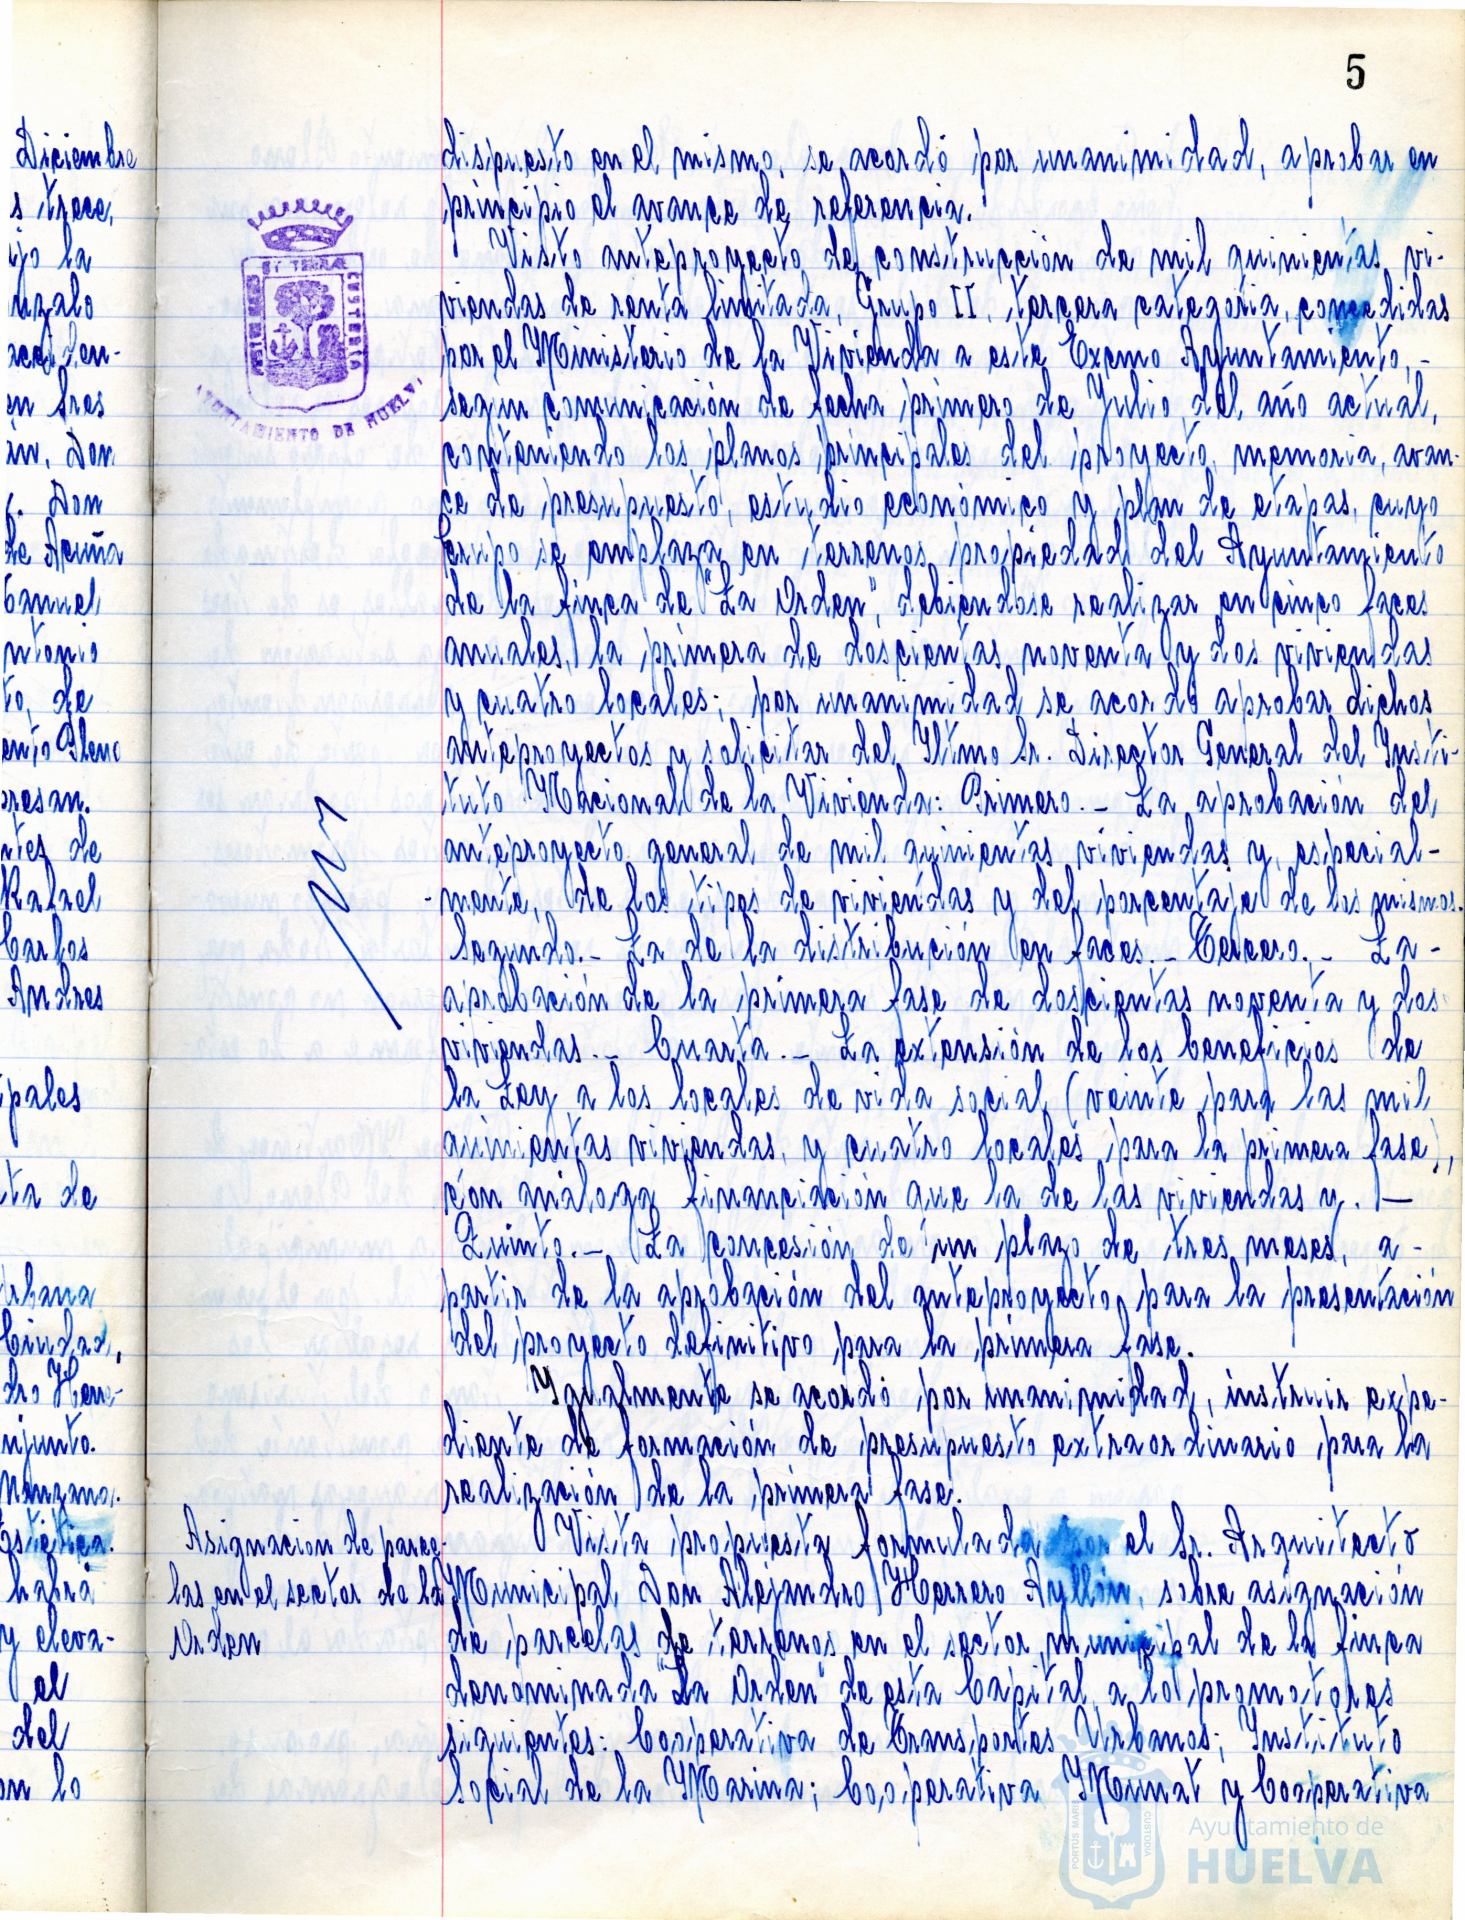 5
Diciembre
s trece,
ajo la
nzalo
acciden-
en tres
in, Don
Don
de Acuña
Samuel
ntonio
to, de
ento Pleno
presan.
ntes de
Rafael
Carlos
Andres
ipales
ta de
urbana
Ciudad,
dro Herre-
njunto.
Manzana.
Estética.
habrá
y eleva-
el
del
on lo
dispuesto en el mismo, se acordó por unanimidad, aprobar en
principio el avance de referencia.
Visto anteproyecto de construcción de mil quinientas vi-
viendas de renta limitada, Grupo II, tercera categoria, concedidas
por el Ministerio de la Vivienda a este Excmo Ayuntamiento, -
segun comunicación de fecha primero de Julio del año actual,
conteniendo los planos principales del proyecto, memoria, avan-
ce de presupuesto, estudio económico y plan de etapas, cuyo
Grupo se emplaza en terrenos propiedad del Ayuntamiento
de la finca de "La Orden", debiendose realizar en cinco faces
anuales, la primera de doscientas noventa y dos viviendas
y cuatro locales; por unanimidad se acordó aprobar dichos
anteproyectos y solicitar del Iltmo Sr. Director General del Insti-
tuto Nacional de la Vivienda: Primero.- La aprobación del
anteproyecto general de mil quinientas viviendas y, especial-
mente, de los tipos de viviendas y del porcentaje de los mismos.
Segundo.- La de la distribución en faces.- Tercero.- La -
aprobación de la primera fase de doscientas noventa y dos
viviendas.- Cuarta.- La extensión de los beneficios de
la Ley a los locales de vida social (veinte para las mil
quinientas viviendas, y cuatro locales para la primera fase),
con análoga financiación que la de las viviendas y. -
Quinto.- La concesión de un plazo de tres meses, a -
partir de la aprobación del anteproyecto para la presentación
del proyecto definitivo para la primera fase.
Igualmente se acordó por unanimidad, instruir expe-
diente de formación de presupuesto extraordinario para la
realización de la primera fase.
Asignacion de parce-
las en el sector de la
Orden
Vista propuesta formulada por el Sr. Arquitecto
Municipal Don Alejandro Herrero Ayllón, sobre asignación
de parcelas de terrenos en el sector municipal de la finca
denominada "La Orden" de esta Capital a los promotores
siguientes: Cooperativa de Transportes Urbanos; Instituto
Social de la Marina; Cooperativa Munat y Cooperativa
AYUNTAMIENTO DE HUELVA
PORTUS MARIS
ET TERRAE
CUSTODIA
PORTUS MARIS
CUSTODIA
Ayuntamiento de
HUELVA